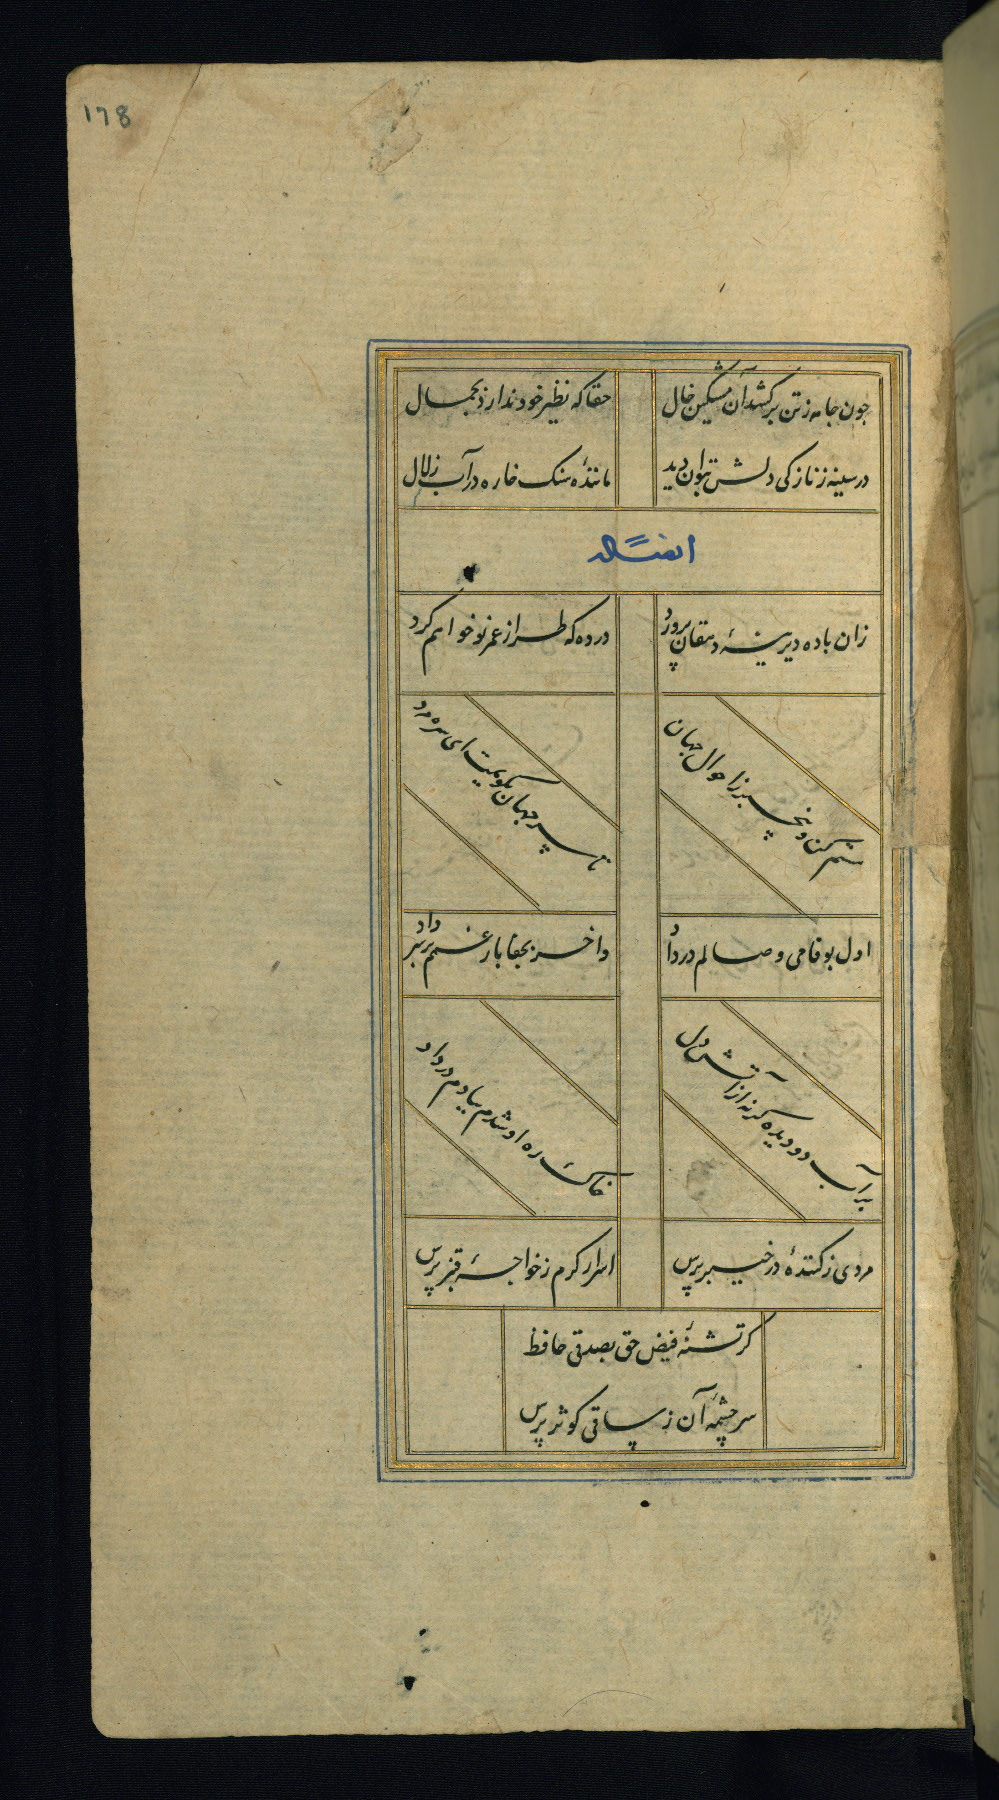 ١٦٨
جون جامه زتن برکشد آن مشکین خال
حقا که نظیر خود ندارد بجمال
در سینه زنازکی دلش بتوان دید
مانندهٔ سنک خاره در آب زلال
ایضاً له
زان باده دیرینهٔ دهقان پرورد
در ده که طراز عمر نو خواهم کرد
مستم کن و بیخبر ز احوال جهان
تا سر جهان بکویمت ای سره مرد
اول بوفا می وصالم در داد
واخر بجفا بار غمم بر سر داد
بر آب دو دیده کرنه از آتش دل
خاک ره او شدم ببادم در داد
مردی ز کنندهٔ در خیبر پرس
اسرار کرم ز خواجهٔ قنبر پرس
کر تشنهٔ فیض حق بصدقی حافظ
سر چشمهٔ آن ز ساقی کوثر پرس